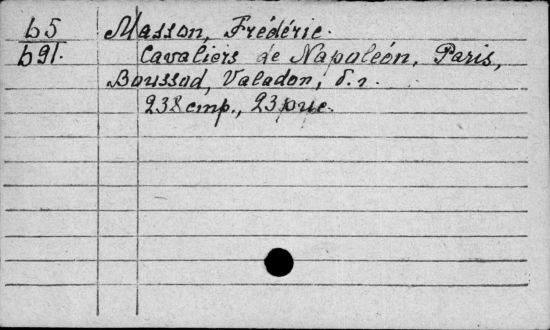 b5 Masson, Frédéric.
b91. Cavaliers de Napoléon, Paris,
Boussod, Valadon, б.г.
238 стр., 23 рис.